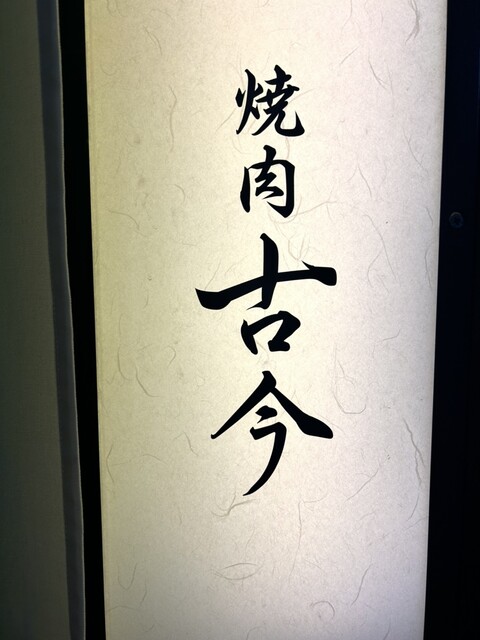 焼肉古今